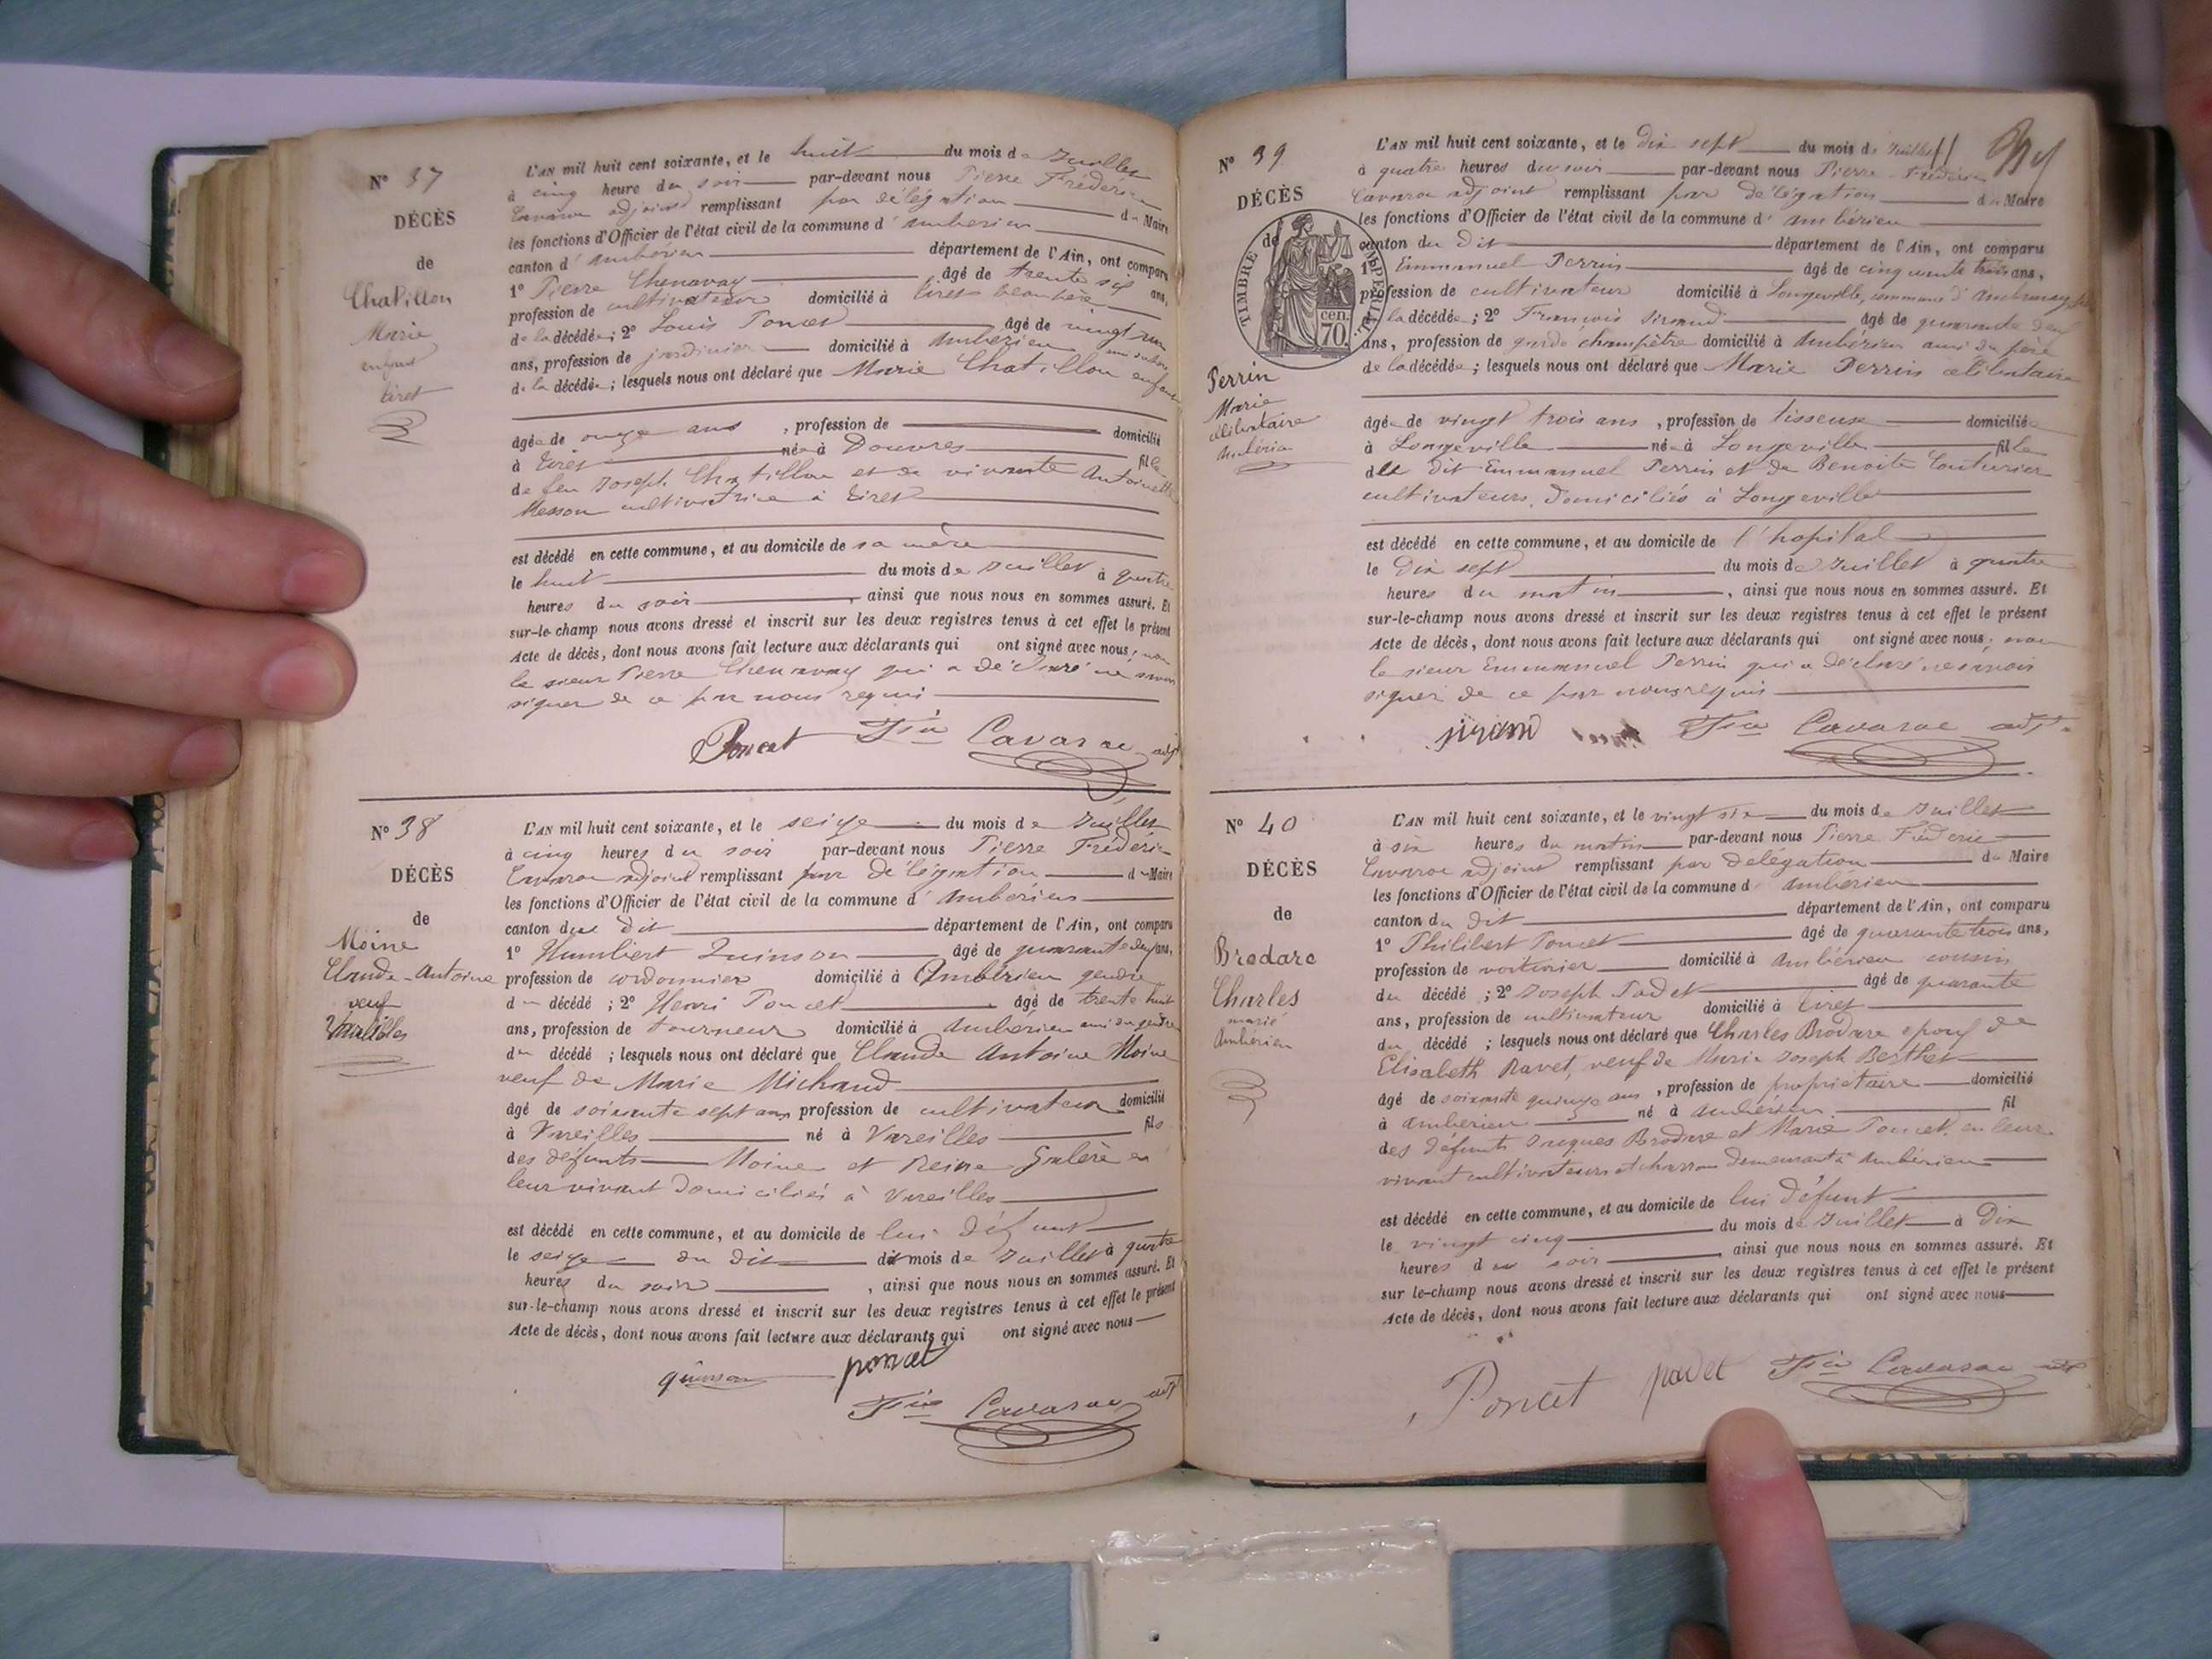 N° 37
DÉCÈS
de
Chatillon
Marie
enfant
tiret
L'AN mil huit cent soixante, et le huit du mois de Juillet
à cinq heure du soir par-devant nous Pierre Fréderic
Cavaroc adjoint remplissant par délégation du Maire
les fonctions d'Officier de l'état civil de la commune d'Ambérieu
canton d'Ambérieu département de l'Ain, ont comparu
1° Pierre Chenavay âgé de trente six ans,
profession de cultivateur domicilié à tiret beau père
de la décédée; 2° Louis Poncet âgé de vingt un
ans, profession de jardinier domicilié à Ambérieu
de la décédée; lesquels nous ont déclaré que Marie Chatillon enfant
âgée de onze ans, profession de domicilié
à tiret née à Douvres fille
de feu Joseph Chatillon et de vivante Antoinette
Messon cultivatrice à tiret
est décédé en cette commune, et au domicile de sa mère
le huit du mois de Juillet à quatre
heures du soir, ainsi que nous nous en sommes assuré. Et
sur-le-champ nous avons dressé et inscrit sur les deux registres tenus à cet effet le présent
Acte de décès, dont nous avons fait lecture aux déclarants qui ont signé avec nous, non
le sieur Pierre Chenavay qui a déclaré ne savoir
signer de ce par nous requis
Poncet Fric Cavaroc adjt
N° 38
DÉCÈS
de
Moine
Claude-Antoine
veuf
Vareilles
L'AN mil huit cent soixante, et le seize du mois de Juillet
à cinq heures du soir par-devant nous Pierre Frederic
Cavaroc adjoint remplissant par délégation du Maire
les fonctions d'Officier de l'état civil de la commune d'Ambérieu
canton du dit département de l'Ain, ont comparu
1° Humbert Quinson âgé de quarante deux ans,
profession de cordonnier domicilié à Ambérieu gendre
du décédé; 2° Henri Poncet âgé de trente huit
ans, profession de tourneur domicilié à Ambérieu ami du gendre
du décédé; lesquels nous ont déclaré que Claude Antoine Moine
veuf de Marie Michaud
âgé de soixante sept ans profession de cultivateur domicilié
à Vareilles né à Vareilles fils
des défunts Moine et Reine Galère en
leur vivant domiciliés à Vareilles
est décédé en cette commune, et au domicile de lui défunt
le seize du dit mois de Juillet à quatre
heures du soir, ainsi que nous nous en sommes assuré. Et
sur-le-champ nous avons dressé et inscrit sur les deux registres tenus à cet effet le présent
Acte de décès, dont nous avons fait lecture aux déclarants qui ont signé avec nous
quinson poncet
Fric Cavaroc adjt
N° 39
DÉCÈS
de
TIMBRE IMPÉRIAL
70 cen.
Perrin
Marie
célibataire
Ambérieu
L'AN mil huit cent soixante, et le dix sept du mois de Juillet
à quatre heures du soir par-devant nous Pierre Fréderic
Cavaroc adjoint remplissant par délégation du Maire
les fonctions d'Officier de l'état civil de la commune d'Ambérieu
canton du dit département de l'Ain, ont comparu
1° Emmanuel Perrin âgé de cinquante trois ans,
profession de cultivateur domicilié à Longeville, commune d'Ambronay
la décédée; 2° François Sirand âgé de quarante deux
ans, profession de garde champêtre domicilié à Ambérieu ami du père
de la décédée; lesquels nous ont déclaré que Marie Perrin célibataire
âgée de vingt trois ans, profession de tisseuse domiciliée
à Longeville née à Longeville fille
du dit Emmanuel Perrin et de Benoite Couturier
cultivateurs, domiciliés à Longeville
est décédé en cette commune, et au domicile de l'hopital
le dix sept du mois de Juillet à quatre
heures du matin, ainsi que nous nous en sommes assuré. Et
sur-le-champ nous avons dressé et inscrit sur les deux registres tenus à cet effet le présent
Acte de décès, dont nous avons fait lecture aux déclarants qui ont signé avec nous, non
le sieur Emmanuel Perrin qui a déclaré ne savoir
signer de ce par nous requis
sirand Fric Cavaroc adjt
N° 40
DÉCÈS
de
Brodare
Charles
marié
Ambérieu
L'AN mil huit cent soixante, et le vingt six du mois de Juillet
à six heures du matin par-devant nous Pierre Fréderic
Cavaroc adjoint remplissant par délégation du Maire
les fonctions d'Officier de l'état civil de la commune d'Ambérieu
canton du dit département de l'Ain, ont comparu
1° Philibert Poncet âgé de quarante trois ans,
profession de voiturier domicilié à Ambérieu cousin
du décédé; 2° Joseph Padet âgé de quarante
ans, profession de cultivateur domicilié à tiret
du décédé; lesquels nous ont déclaré que Charles Brodare époux de
Elisabeth Ravet, veuf de Marie Joseph Berthet
âgé de soixante quinze ans, profession de propriétaire domicilié
à Ambérieu né à Ambérieu fil
des défunts Jacques Brodare et Marie Poncet, en leur
vivant cultivateurs et charron demeurant à Ambérieu
est décédé en cette commune, et au domicile de lui défunt
le vingt cinq du mois de Juillet à dix
heures du soir, ainsi que nous nous en sommes assuré. Et
sur le-champ nous avons dressé et inscrit sur les deux registres tenus à cet effet le présent
Acte de décès, dont nous avons fait lecture aux déclarants qui ont signé avec nous
Poncet padet Fric Cavaroc adjt